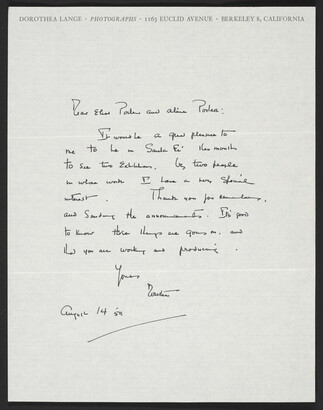 DOROTHEA LANGE · PHOTOGRAPHS · 1163 EUCLID AVENUE · BERKELEY 8, CALIFORNIA
Dear Eliot Porter and Aline Porter:
It would be a great pleasure to
me to be in Santa Fé this month
to see two Exhibitions. by two people
in whose work I have a very special
interest. Thank you for remembering,
and sending the announcements. It's good
to know these things are going on, and
that you are working and producing.
Yours
Dorothea
August 14